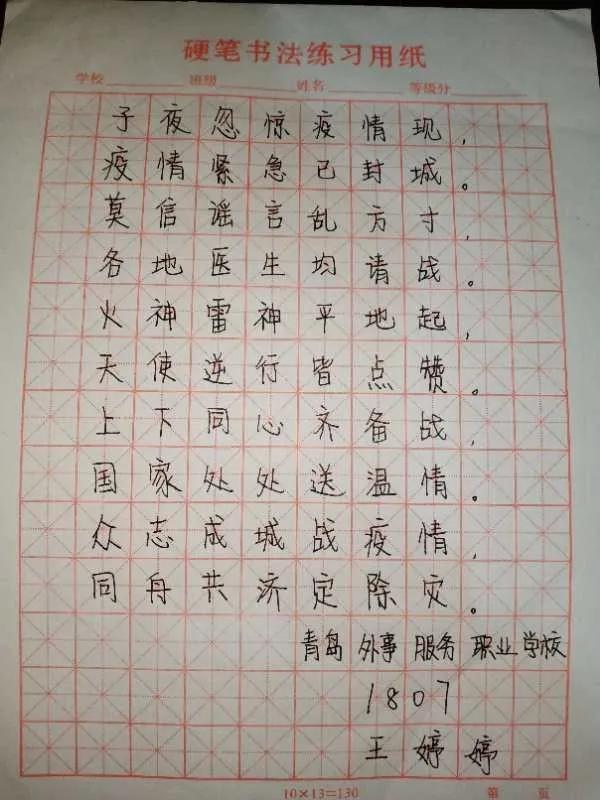 硬笔书法练习用纸
学校 班级 姓名 等级分
子夜忽惊疫情现，
疫情紧急已封城。
莫信谣言乱方寸，
各地医生均请战。
火神雷神平地起，
天使逆行皆点赞。
上下同心齐备战，
国家处处送温情。
众志成城战疫情，
同舟共济定除灾。
青岛外事服务职业学校
1807
王婷婷
10×13=130 第 页